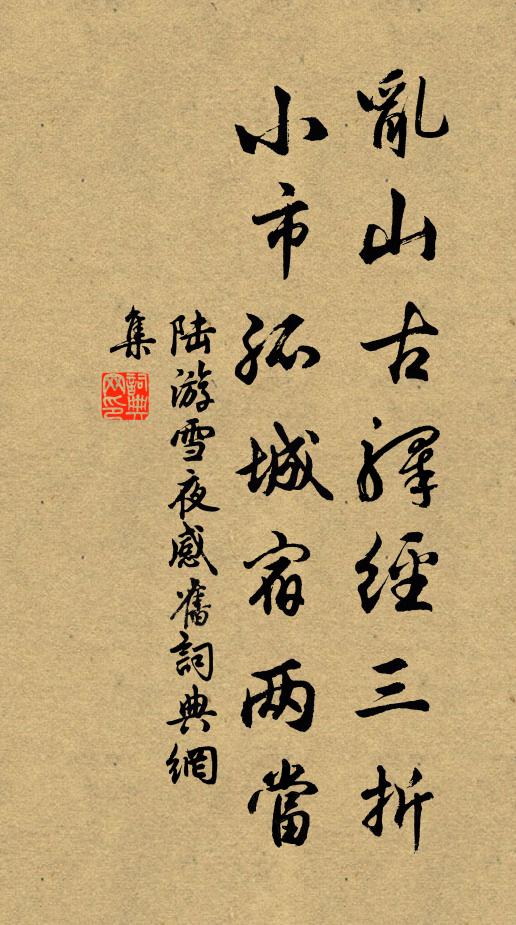 亂山古驛經三折
小市孤城宿两當
陆游雪夜感舊詞典網
集
詞典网印